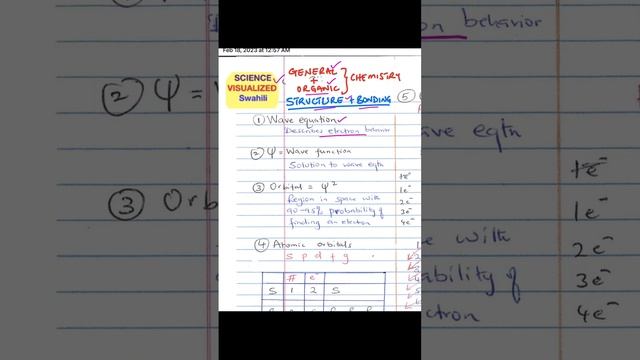 Feb 18, 2023 at 12:57 AM
SCIENCE
VISUALIZED
Swahili
GENERAL
+
ORGANIC
} CHEMISTRY
STRUCTURE + BONDING
① Wave equation
Describes electron behavior
② Ψ = Wave function
Solution to wave eqtn
③ Orbital = Ψ²
Region in space with
90-95% probability of
finding an electron
④ Atomic orbitals
s p d f g
# e⁻
S 1 2 S
⑤
1e⁻
2e⁻
3e⁻
4e⁻
behavior
② Ψ =
③ Orb
ave eqtn
with
ability of
ctron
1e⁻
2e⁻
3e⁻
4e⁻